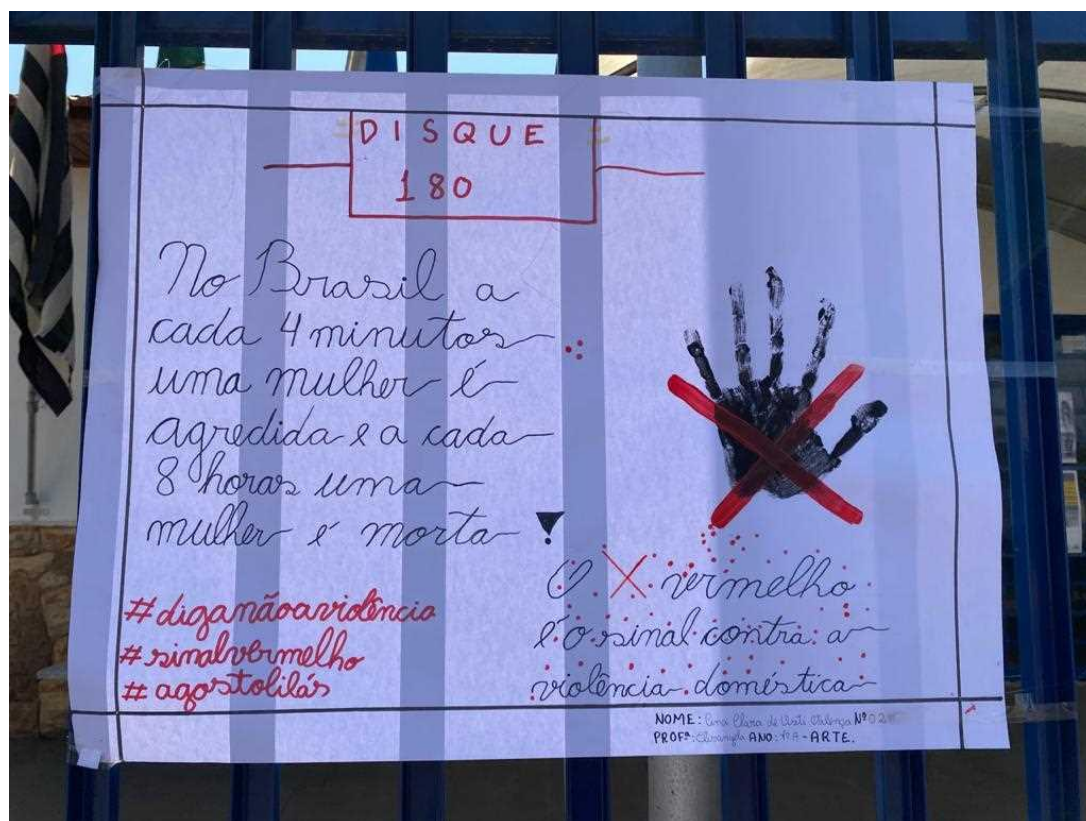 DISQUE
180
No Brasil a
cada 4 minutos
uma mulher é
agredida e a cada
8 horas uma
mulher é morta
#diganãoaviolência
#sinalvermelho
#agostolilás
O X vermelho
é o sinal contra a
violência doméstica
NOME: Clara de Nº 02
PROFª: ANO: A - ARTE.